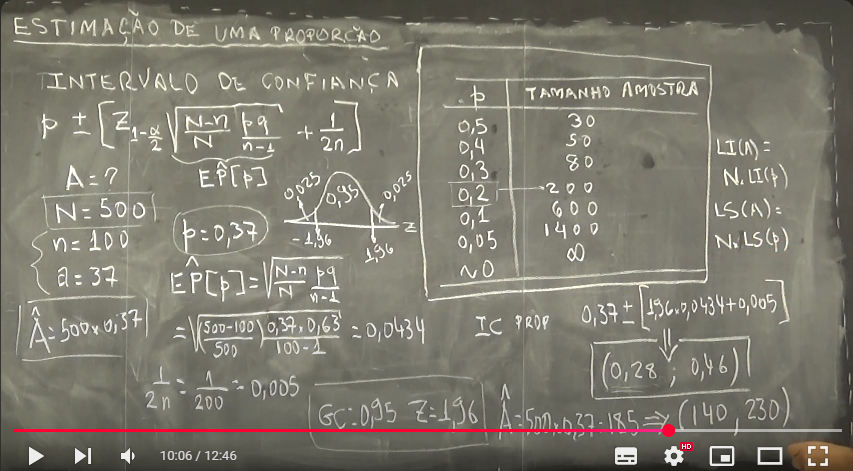 ESTIMAÇÃO DE UMA PROPORÇÃO
INTERVALO DE CONFIANÇA
p ± [Z_{1-α/2} √((N-n)/N · pq/(n-1)) + 1/2n]
EP̂[p]
A = ?
N = 500
n = 100
a = 37
p = 0,37
0,025
0,95
0,025
-1,96
1,96
Z
EP̂[p] = √((N-n)/N · pq/(n-1))
Â = 500 x 0,37
= √((500-100)/500) (0,37 . 0,63/(100-1)) = 0,0434
1/2n = 1/200 = 0,005
GC = 0,95 Z = 1,96
p TAMANHO AMOSTRA
0,5 30
0,4 50
0,3 80
0,2 → 200
0,1 600
0,05 1400
~0 ∞
LI(A) =
N. LI(p)
LS(A) =
N. LS(p)
IC PROP 0,37 ± [1,96 x 0,0434 + 0,005]
(0,28 ; 0,46)
Â = 500 x 0,37 = 185 ⇒ (140, 230)
10:06 / 12:46
HD